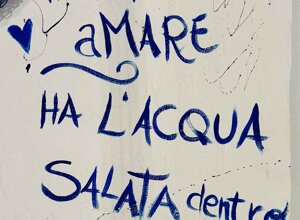 aMARE
HA L'ACQUA
SALATA dentro